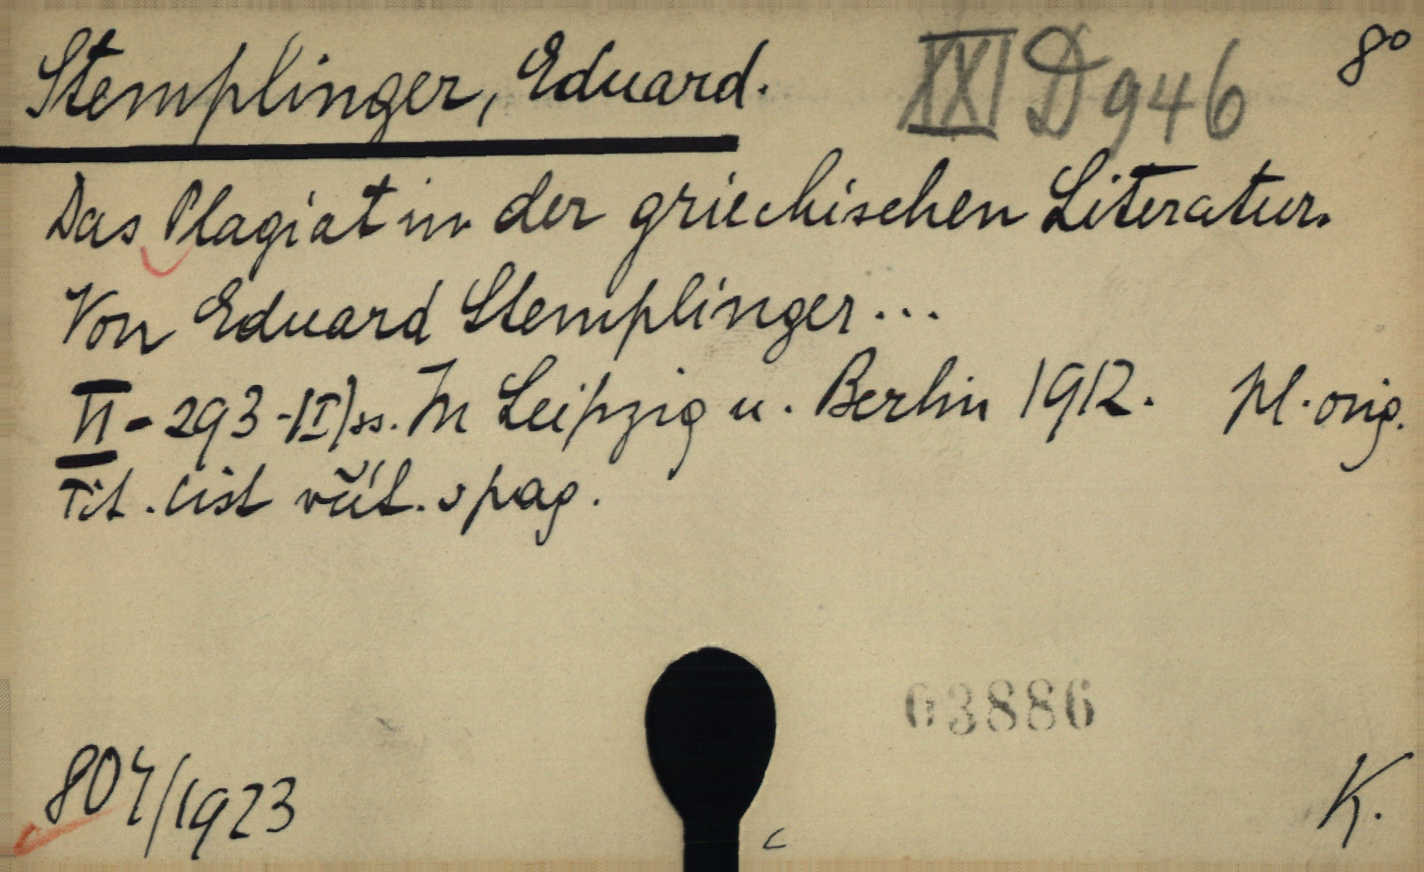 Stemplinger, Eduard. XXI D 946 8°
Das Plagiat in der griechischen Literatur.
Von Eduard Stemplinger...
VI-293-(I) ss. In Leipzig u. Berlin 1912. pl. orig.
Tit. list včít. v pag.
03886
804/1923
K.